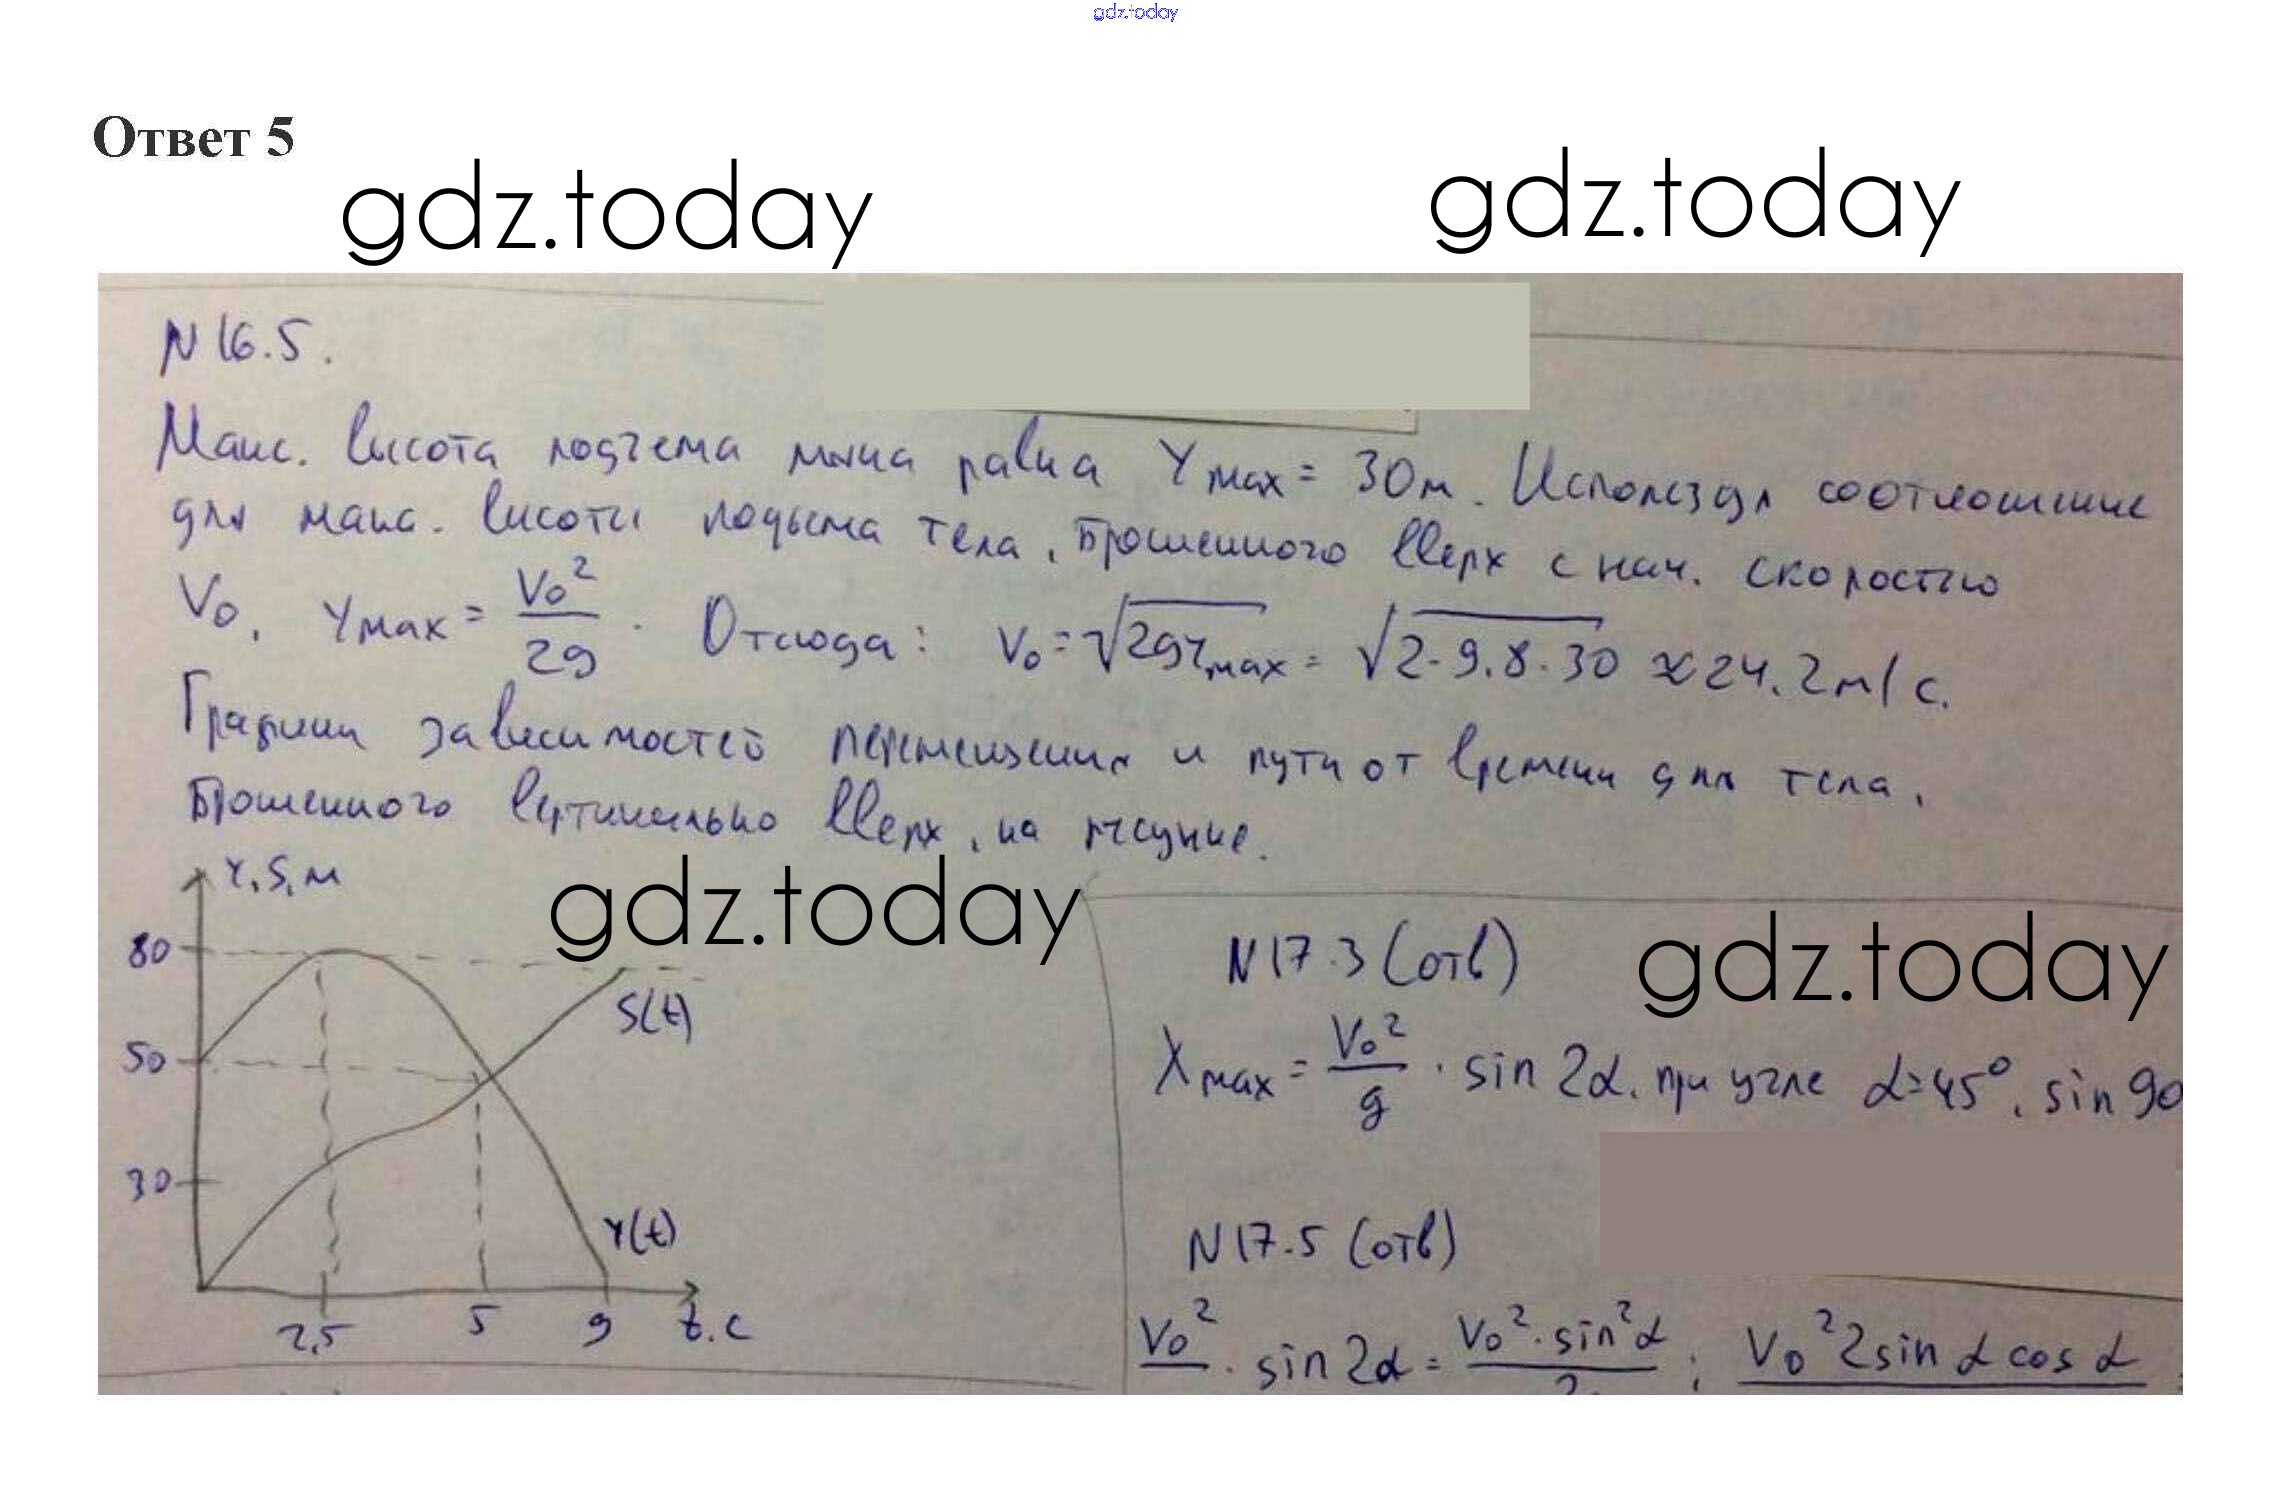 gdz.today
Ответ 5
gdz.today gdz.today
N 16.5.
Макс. высота подъема мяча равна Yмах = 30м. Используя соотношение
для макс. высоты подъема тела, брошенного вверх с нач. скоростью
V₀, Yмах = V₀²/2g. Отсюда: V₀ = √2gYмах = √2·9,8·30 ≈ 24,2м/с.
Графики зависимостей перемещения и пути от времени для тела,
брошенного вертикально вверх, на рисунке.
Y,S,м
gdz.today
80
S(t)
50
30
Y(t)
2,5 5 9 t,с
N 17.3 (отв)
gdz.today
Xмах = V₀²/g · sin 2α, при угле α=45°, sin 90
N 17.5 (отв)
V₀² · sin 2α = V₀²·sin²α / 2 ; V₀² 2 sin α cos α